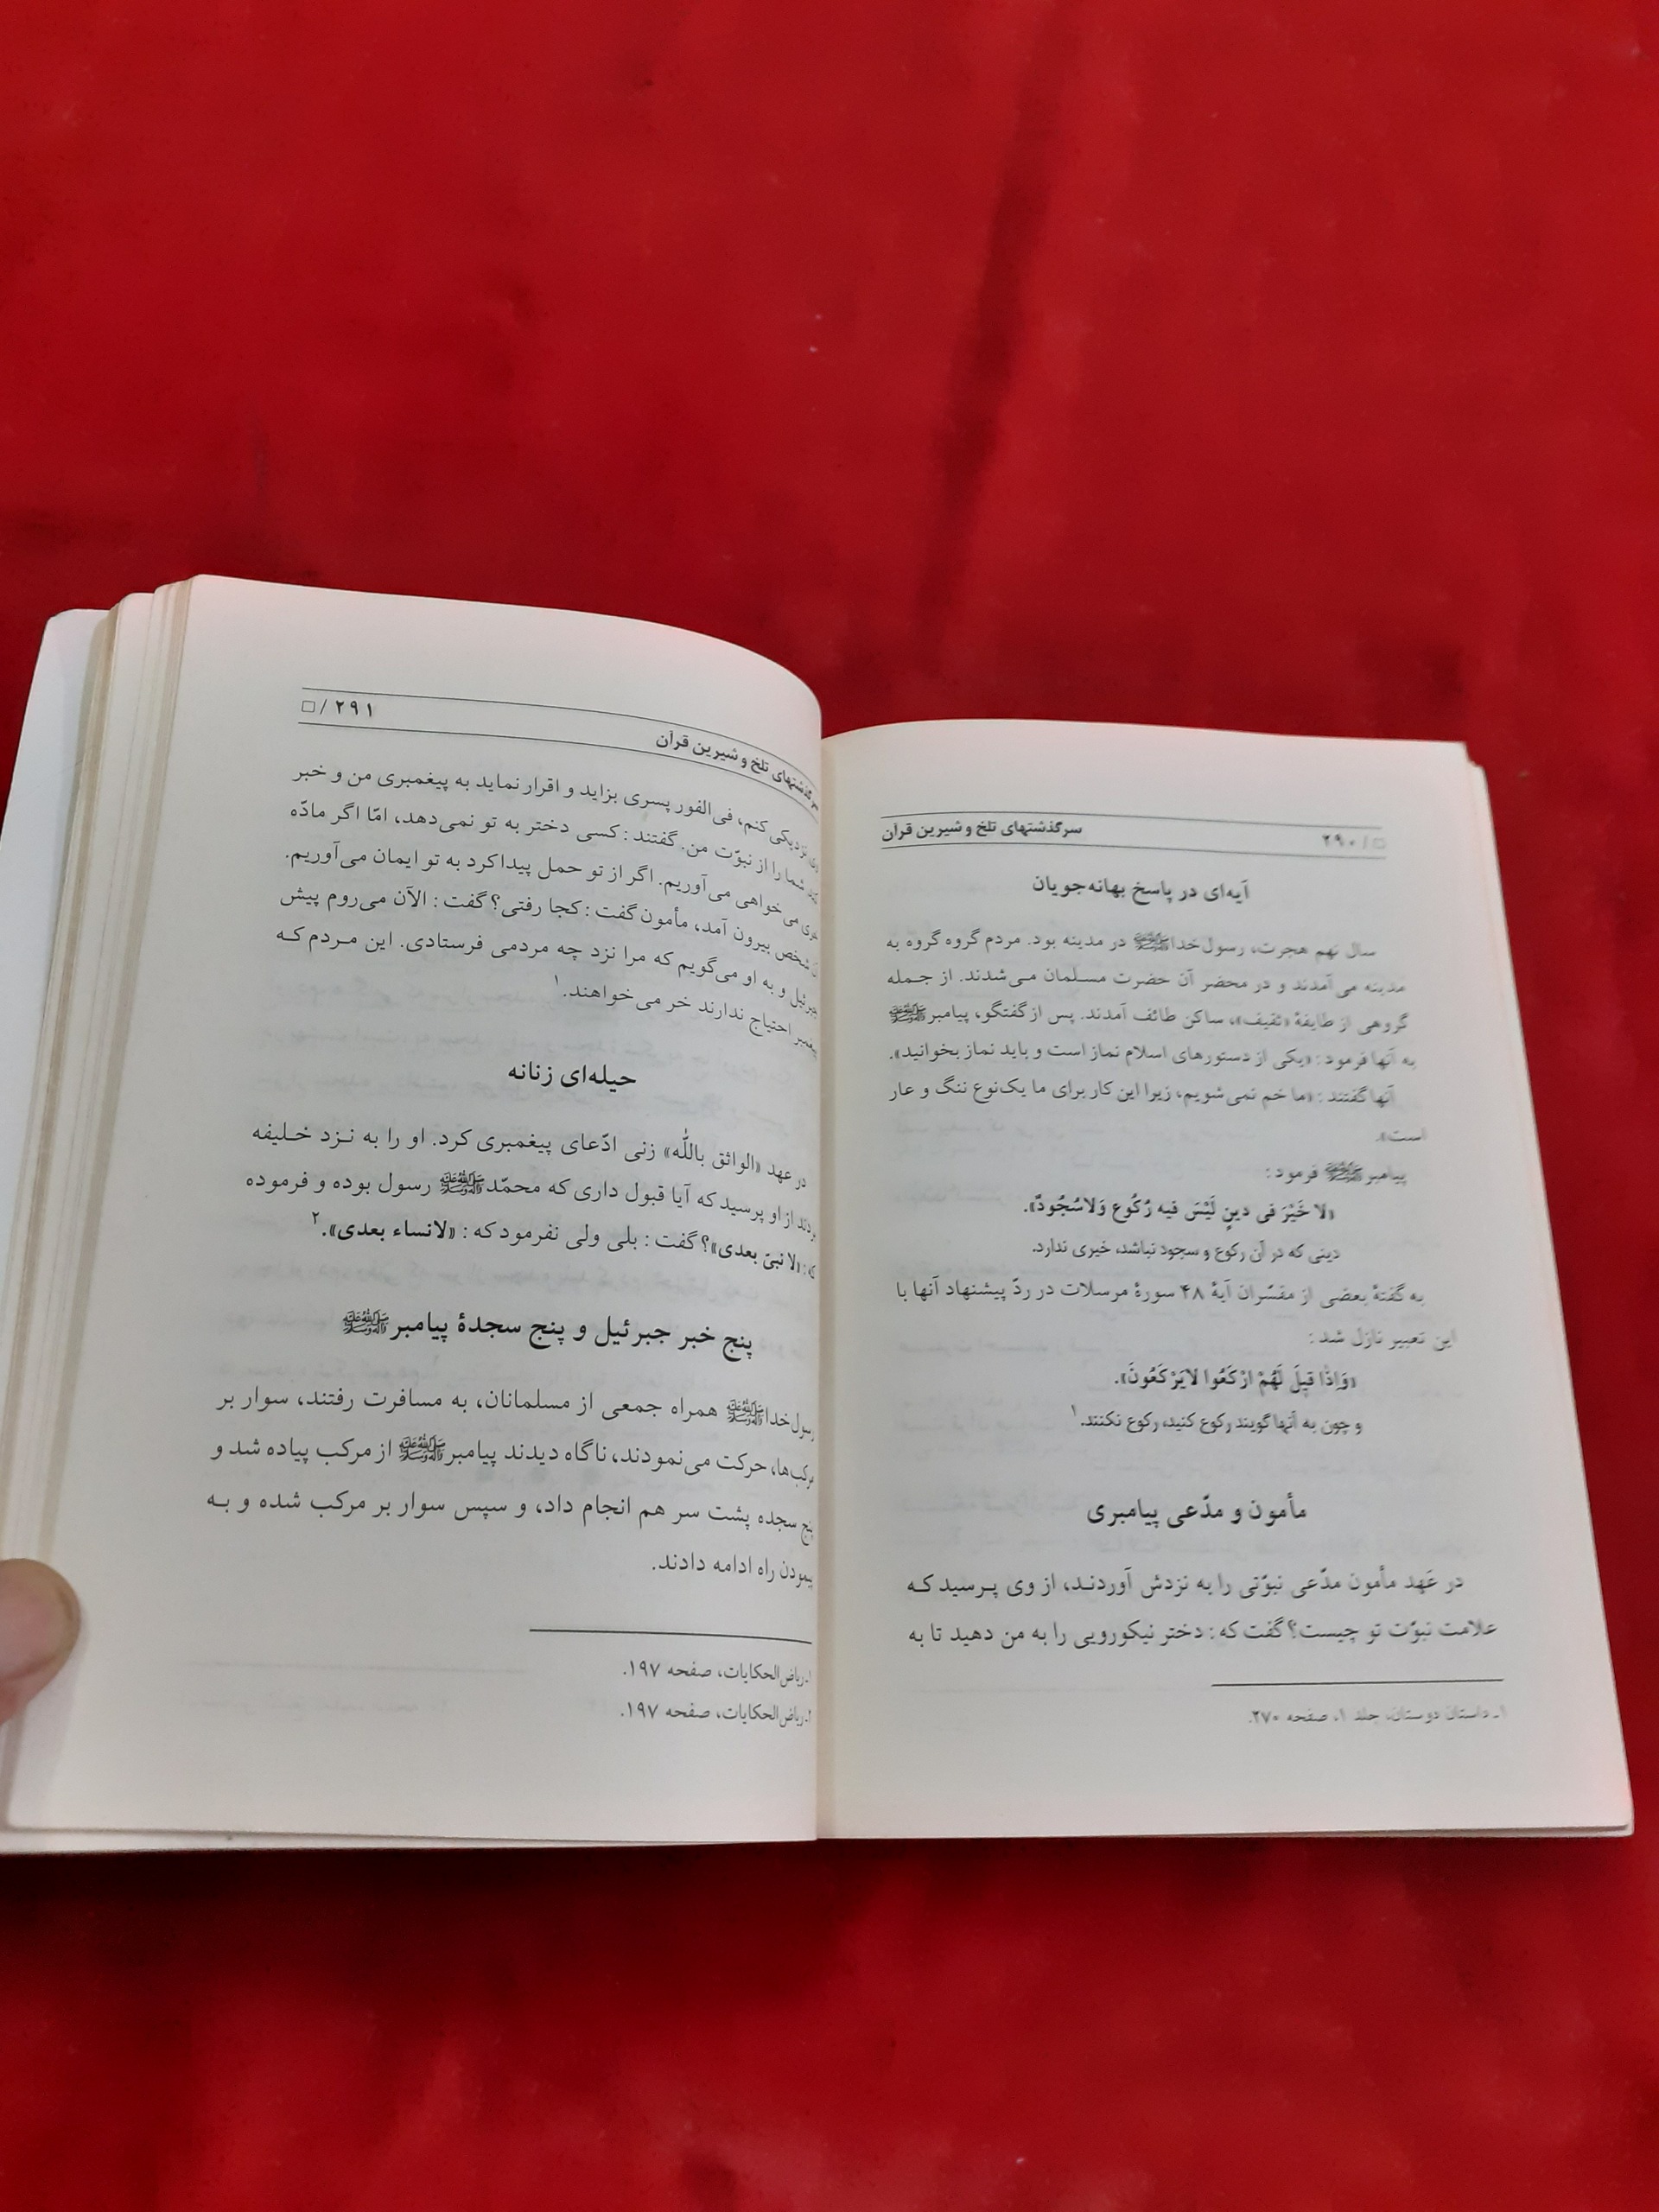 □ / ۲۹۰ سرگذشتهای تلخ و شیرین قرآن
آیه‌ای در پاسخ بهانه‌جویان
سال نهم هجرت، رسول‌خداﷺ در مدینه بود. مردم گروه گروه به
مدینه می‌آمدند و در محضر آن حضرت مسلمان می‌شدند. از جمله
گروهی از طایفهٔ «ثقیف»، ساکن طائف آمدند. پس از گفتگو، پیامبرﷺ
به آنها فرمود: «یکی از دستورهای اسلام نماز است و باید نماز بخوانید».
آنها گفتند: «ما خم نمی‌شویم، زیرا این کار برای ما یک‌نوع ننگ و عار
است».
پیامبرﷺ فرمود:
«لا خَیْرَ فی دینٍ لَیْسَ فیه رُکُوع وَلاسُجُودٌ».
دینی که در آن رکوع و سجود نباشد، خیری ندارد.
به گفتهٔ بعضی از مفسّران آیهٔ ۴۸ سورهٔ مرسلات در ردّ پیشنهاد آنها با
این تعبیر نازل شد:
«وَاِذٰا قیلَ لَهُمْ ارْکَعُوا لایَرْکَعُونَ».
و چون به آنها گویند رکوع کنید، رکوع نکنند.۱
مأمون و مدّعی پیامبری
در عَهد مأمون مدّعی نبوّتی را به نزدش آوردند، از وی پرسید که
علامت نبوّت تو چیست؟ گفت که: دختر نیکورویی را به من دهید تا به
۱ـ داستان دوستان، جلد ۱، صفحه ۲۷۰.
سرگذشتهای تلخ و شیرین قرآن ۲۹۱ / □
نزدیکی کنم، فی‌الفور پسری بزاید و اقرار نماید به پیغمبری من و خبر
شما را از نبوّت من. گفتند: کسی دختر به تو نمی‌دهد، امّا اگر مادّه
می‌خواهی می‌آوریم. اگر از تو حمل پیدا کرد به تو ایمان می‌آوریم.
شخص بیرون آمد، مأمون گفت: کجا رفتی؟ گفت: الآن می‌روم پیش
جبرئیل و به او می‌گویم که مرا نزد چه مردمی فرستادی. این مردم که
پیغمبر احتیاج ندارند خر می‌خواهند.۱
حیله‌ای زنانه
در عهد «الواثق باللّٰه» زنی ادّعای پیغمبری کرد. او را به نزد خلیفه
بردند از او پرسید که آیا قبول داری که محمّدﷺ رسول بوده و فرموده
که: «لا نبیّ بعدی»؟ گفت: بلی ولی نفرمود که: «لانساء بعدی».۲
پنج خبر جبرئیل و پنج سجدهٔ پیامبرﷺ
رسول‌خداﷺ همراه جمعی از مسلمانان، به مسافرت رفتند، سوار بر
مرکب‌ها، حرکت می‌نمودند، ناگاه دیدند پیامبرﷺ از مرکب پیاده شد و
پنج سجده پشت سر هم انجام داد، و سپس سوار بر مرکب شده و به
پیمودن راه ادامه دادند.
۱ـ ریاض‌الحکایات، صفحه ۱۹۷.
۲ـ ریاض‌الحکایات، صفحه ۱۹۷.